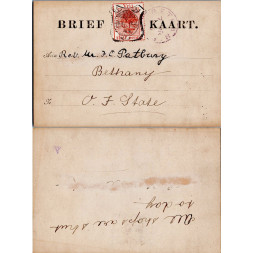 BRIEF KAART.
Aan Rev. Mr J. C. Pathury
Bethany
Te O. F. State
All shops are shut
to day